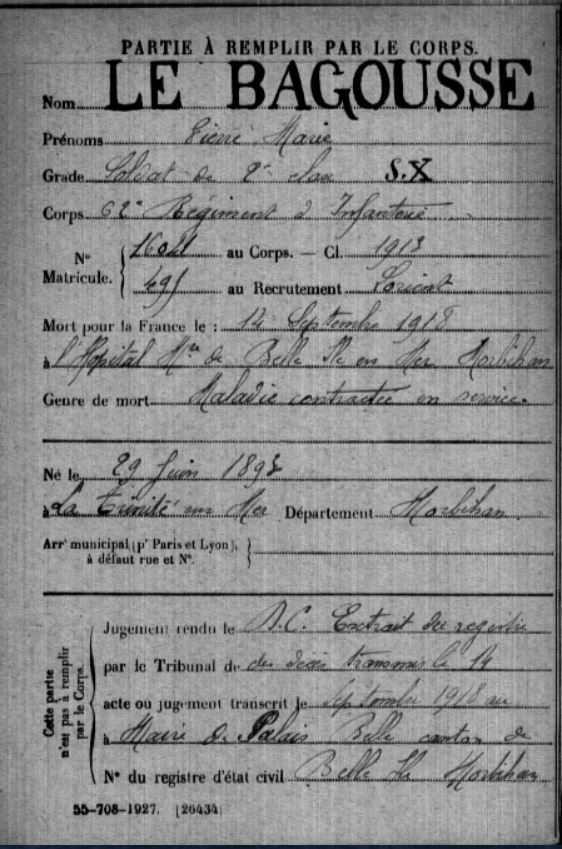 PARTIE À REMPLIR PAR LE CORPS.
Nom LE BAGOUSSE
Prénoms Pierre Marie
Grade Soldat de 2e classe S.X
Corps 62e Régiment d'Infanterie
No Matricule. au Corps. — Cl. 1913
491 au Recrutement Lorient
Mort pour la France le : 14 Septembre 1918
à l'Hopital Mre de Belle Ile en Mer Morbihan
Genre de mort Maladie contractée en service.
Né le 29 Juin 1893
à La Trinité sur Mer Département Morbihan
Arrt municipal (pr Paris et Lyon),
à défaut rue et No.
Cette partie n'est pas à remplir par le Corps.
Jugement rendu le D.C. Extrait du registre
par le Tribunal de des décès transmis le 14
acte ou jugement transcrit le Septembre 1918 au
à Maire de Palais Belle canton de
No du registre d'état civil Belle Ile Morbihan
55-708-1927. [26434]